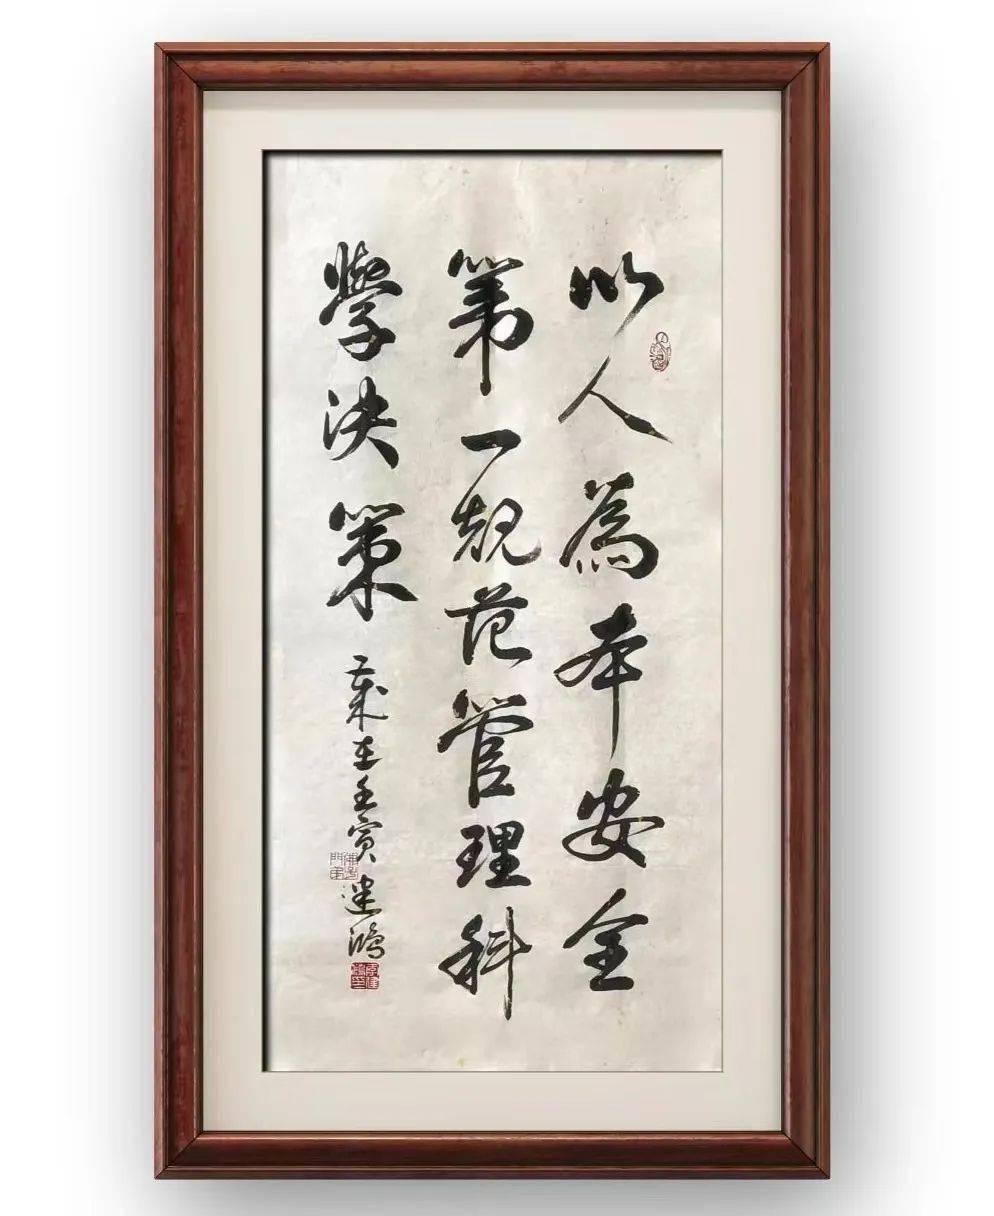 以人為本安全
第一规范管理科
學決策
歲在壬寅建鴻